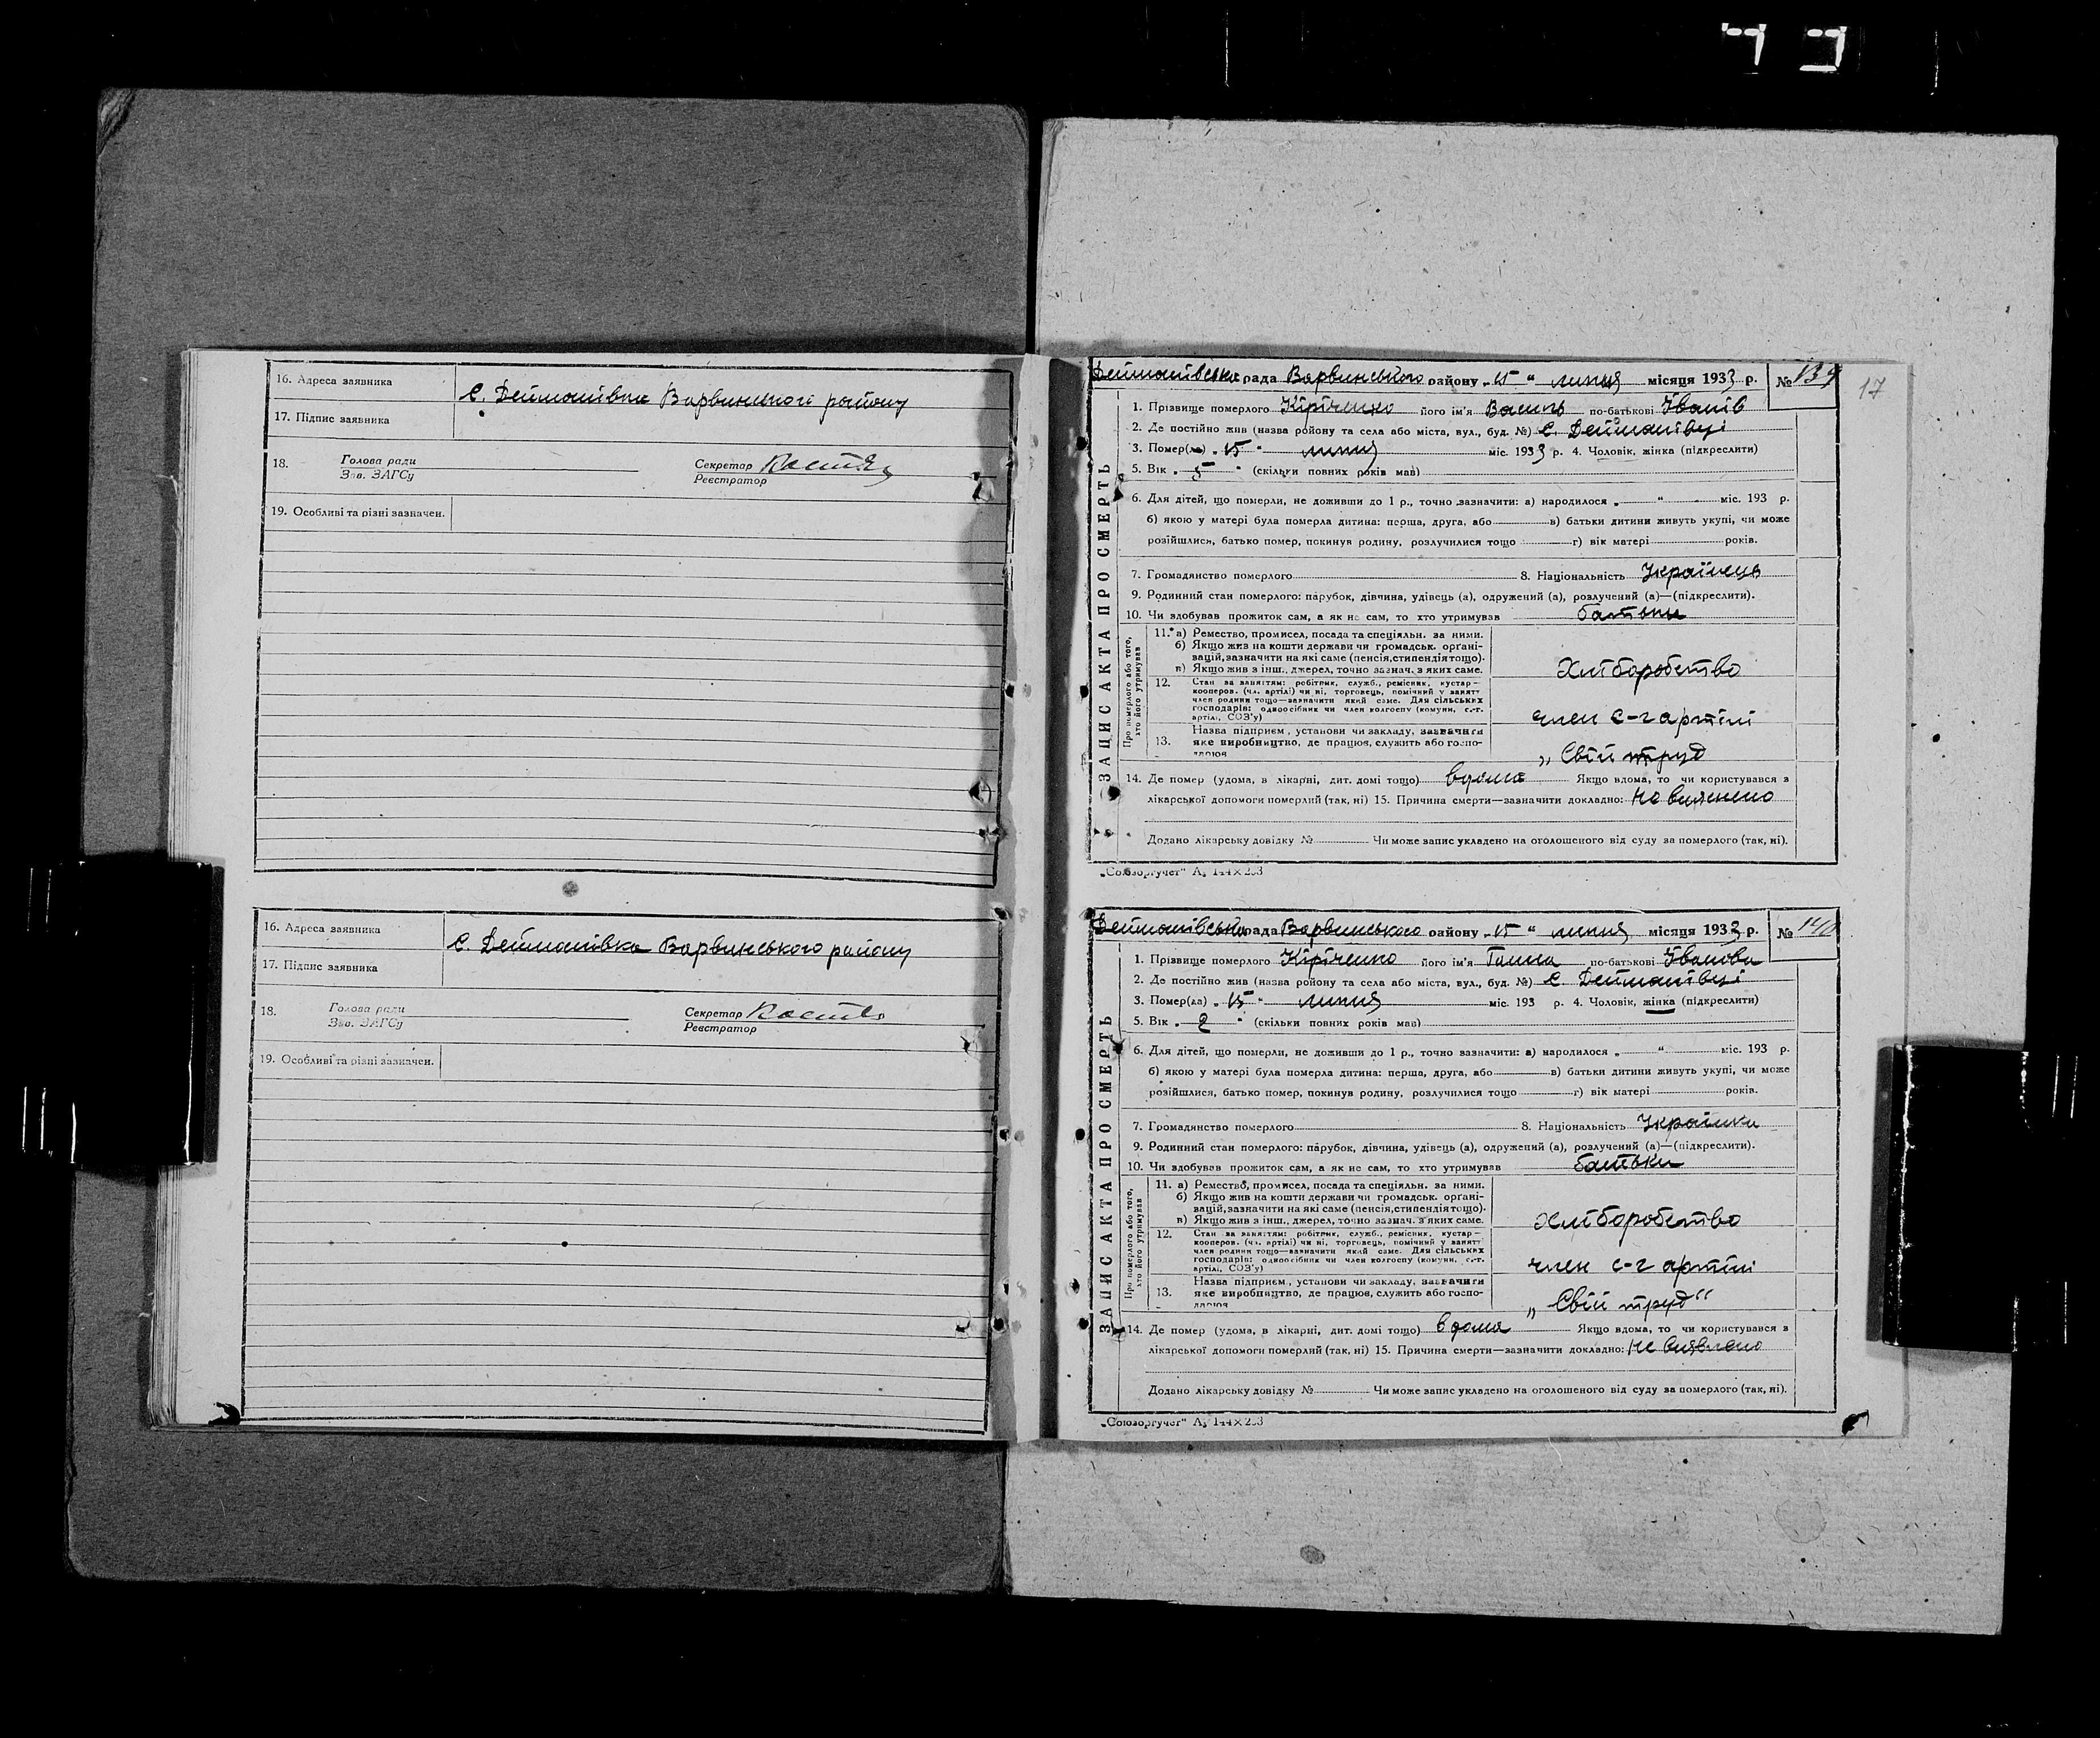 16. Адреса заявника
с. Дейманівка Варвинського району
17. Підпис заявника
18. Голова ради
Зав. ЗАГСу
Секретар
Реєстратор
19. Особливі та різні зазначен.
16. Адреса заявника
с. Дейманівка Варвинського району
17. Підпис заявника
18. Голова ради
Зав. ЗАГСу
Секретар
Реєстратор
19. Особливі та різні зазначен.
17
ЗАПИС АКТА ПРО СМЕРТЬ
Дейманівська рада Варвинського району „15“ липня місяця 1933 р. № 139
1. Прізвище померлого Кіріченко його ім'я Василь по-батькові Іванів
2. Де постійно жив (назва району та села або міста, вул., буд. №) с. Дейманівці
3. Помер(ла) „15“ липня міс. 1933 р. 4. Чоловік, жінка (підкреслити)
5. Вік „5“ (скільки повних років мав)
6. Для дітей, що померли, не доживши до 1 р., точно зазначити: а) народилося „ “ міс. 193 р.
б) якою у матері була померла дитина: перша, друга, або в) батьки дитини живуть укупі, чи може
розійшлися, батько помер, покинув родину, розлучилися тощо г) вік матері років.
7. Громадянство померлого 8. Національність Українець
9. Родинний стан померлого: парубок, дівчина, удівець (а), одружений (а), розлучений (а)—(підкреслити).
10. Чи здобував прожиток сам, а як не сам, то хто утримував батьки
Про померлого або того, хто його утримував
11. а) Ремество, промисел, посада та спеціяльн. за ними.
б) Якщо жив на кошти держави чи громадськ. органі-
зацій, зазначити на які саме (пенсія, стипендія тощо).
в) Якщо жив з інш., джерел, точно зазнач. з яких саме.
Хліборобство
12. Стан за заняттям: робітник, служб., ремісник, кустар—
кооперов. (чл. артілі) чи ні, торговець, помічний у занятт
член родини тощо—зазначити який саме. Для сільських
господарів: одноосібник чи член колгоспу (комуни, с.-г.
артілі, СОЗ'у)
член с-г артілі
13. Назва підприєм., установи чи закладу, зазначити
яке виробництво, де працює, служить або госпо-
„Свій труд
14. Де помер (удома, в лікарні, дит. домі тощо) вдома Якщо вдома, то чи користувався з
лікарської допомоги померлий (так, ні) 15. Причина смерти—зазначити докладно: не виявлено
Додано лікарську довідку № Чи може запис укладено на оголошеного від суду за померлого (так, ні).
„Союзоргучет“ А₅ 144×203
ЗАПИС АКТА ПРО СМЕРТЬ
Дейманівська рада Варвинського району „15“ липня місяця 1933 р. № 140
1. Прізвище померлого Кіріченко його ім'я Ганна по-батькові Іванова
2. Де постійно жив (назва району та села або міста, вул., буд. №) с. Дейманівці
3. Помер(ла) „15“ липня міс. 193 р. 4. Чоловік, жінка (підкреслити)
5. Вік „2“ (скільки повних років мав)
6. Для дітей, що померли, не доживши до 1 р., точно зазначити: а) народилося „ “ міс. 193 р.
б) якою у матері була померла дитина: перша, друга, або в) батьки дитини живуть укупі, чи може
розійшлися, батько помер, покинув родину, розлучилися тощо г) вік матері років.
7. Громадянство померлого 8. Національність Українка
9. Родинний стан померлого: парубок, дівчина, удівець (а), одружений (а), розлучений (а)—(підкреслити).
10. Чи здобував прожиток сам, а як не сам, то хто утримував батьки
Про померлого або того, хто його утримував
11. а) Ремество, промисел, посада та спеціяльн. за ними.
б) Якщо жив на кошти держави чи громадськ. органі-
зацій, зазначити на які саме (пенсія, стипендія тощо).
в) Якщо жив з інш., джерел, точно зазнач. з яких саме.
Хліборобство
12. Стан за заняттям: робітник, служб., ремісник, кустар—
кооперов. (чл. артілі) чи ні, торговець, помічний у занятт
член родини тощо—зазначити який саме. Для сільських
господарів: одноосібник чи член колгоспу (комуни, с.-г.
артілі, СОЗ'у)
член с-г артілі
13. Назва підприєм., установи чи закладу, зазначити
яке виробництво, де працює, служить або госпо-
„Свій труд“
14. Де помер (удома, в лікарні, дит. домі тощо) вдома Якщо вдома, то чи користувався з
лікарської допомоги померлий (так, ні) 15. Причина смерти—зазначити докладно: не виявлено
Додано лікарську довідку № Чи може запис укладено на оголошеного від суду за померлого (так, ні).
„Союзоргучет“ А₅ 144×203